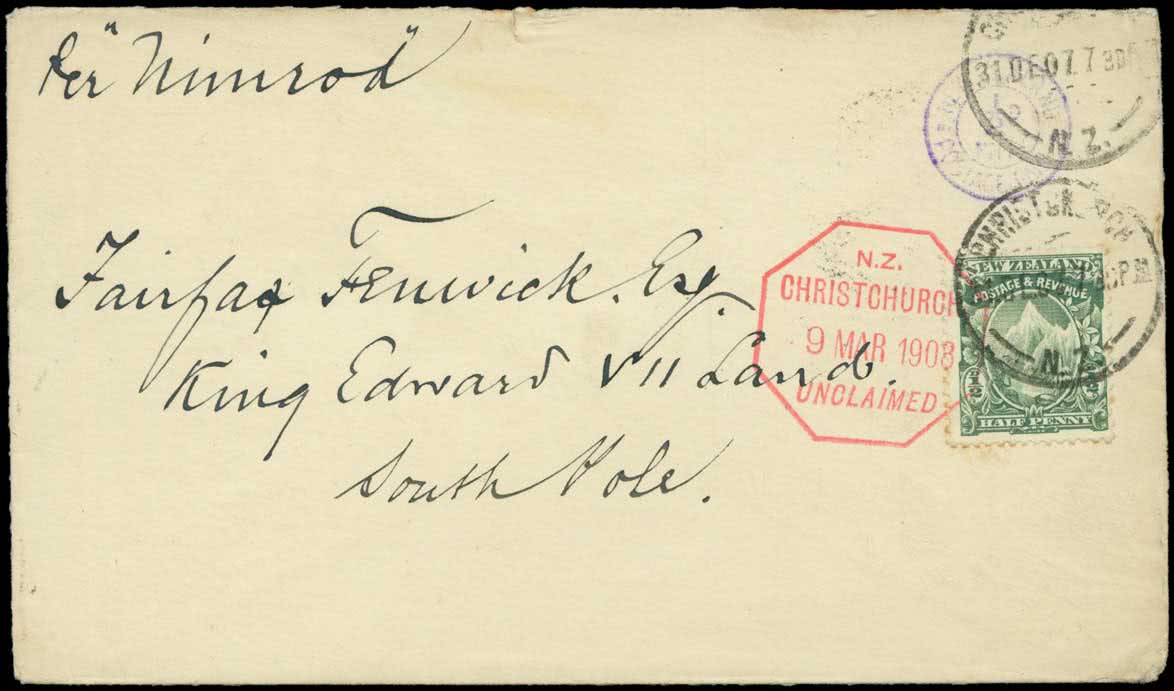 per "Nimrod"
31 DE 07 7 30P
N.Z.
Fairfax Fenwick. Esq.
King Edward VII Land.
South Pole.
N.Z.
CHRISTCHURCH
9 MAR 1908
UNCLAIMED
CHRISTCHURCH
N.Z.
NEW ZEALAND
POSTAGE & REVENUE
1/2
HALF PENNY